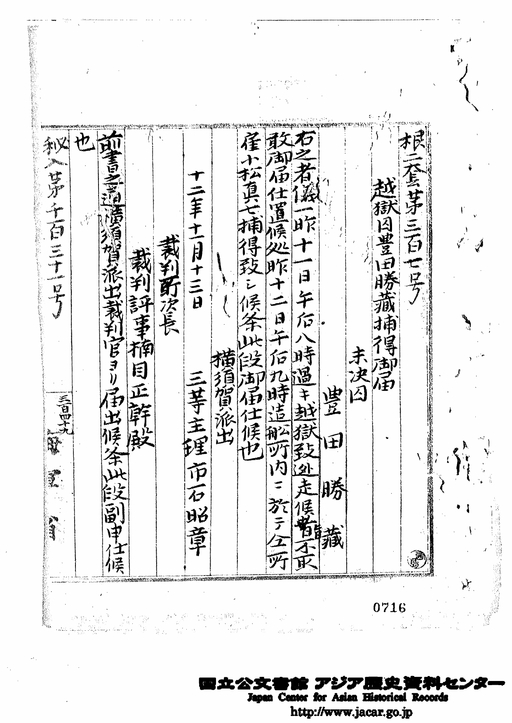 根二套第三百七号
越獄囚豊田勝藏捕得御届
未决囚
豊田勝藏
右之者儀一昨十一日午后八時過キ越獄致逃走候旨不取
敢御届仕置候処昨十二日午后九時造船所内ニ於テ仝所
雇小松真七捕得致シ候条此段御届仕候也
横須賀派出
十二年十一月十三日 三等主理市石昭章
裁判所次長
裁判評事楠目正幹殿
前書之通横須賀派出裁判官ヨリ届出候条此段副申仕候
也
秘入第千百三十一号
三百四十九
海軍省
0716
国立公文書館 アジア歴史資料センター
Japan Center for Asian Historical Records
http://www.jacar.go.jp